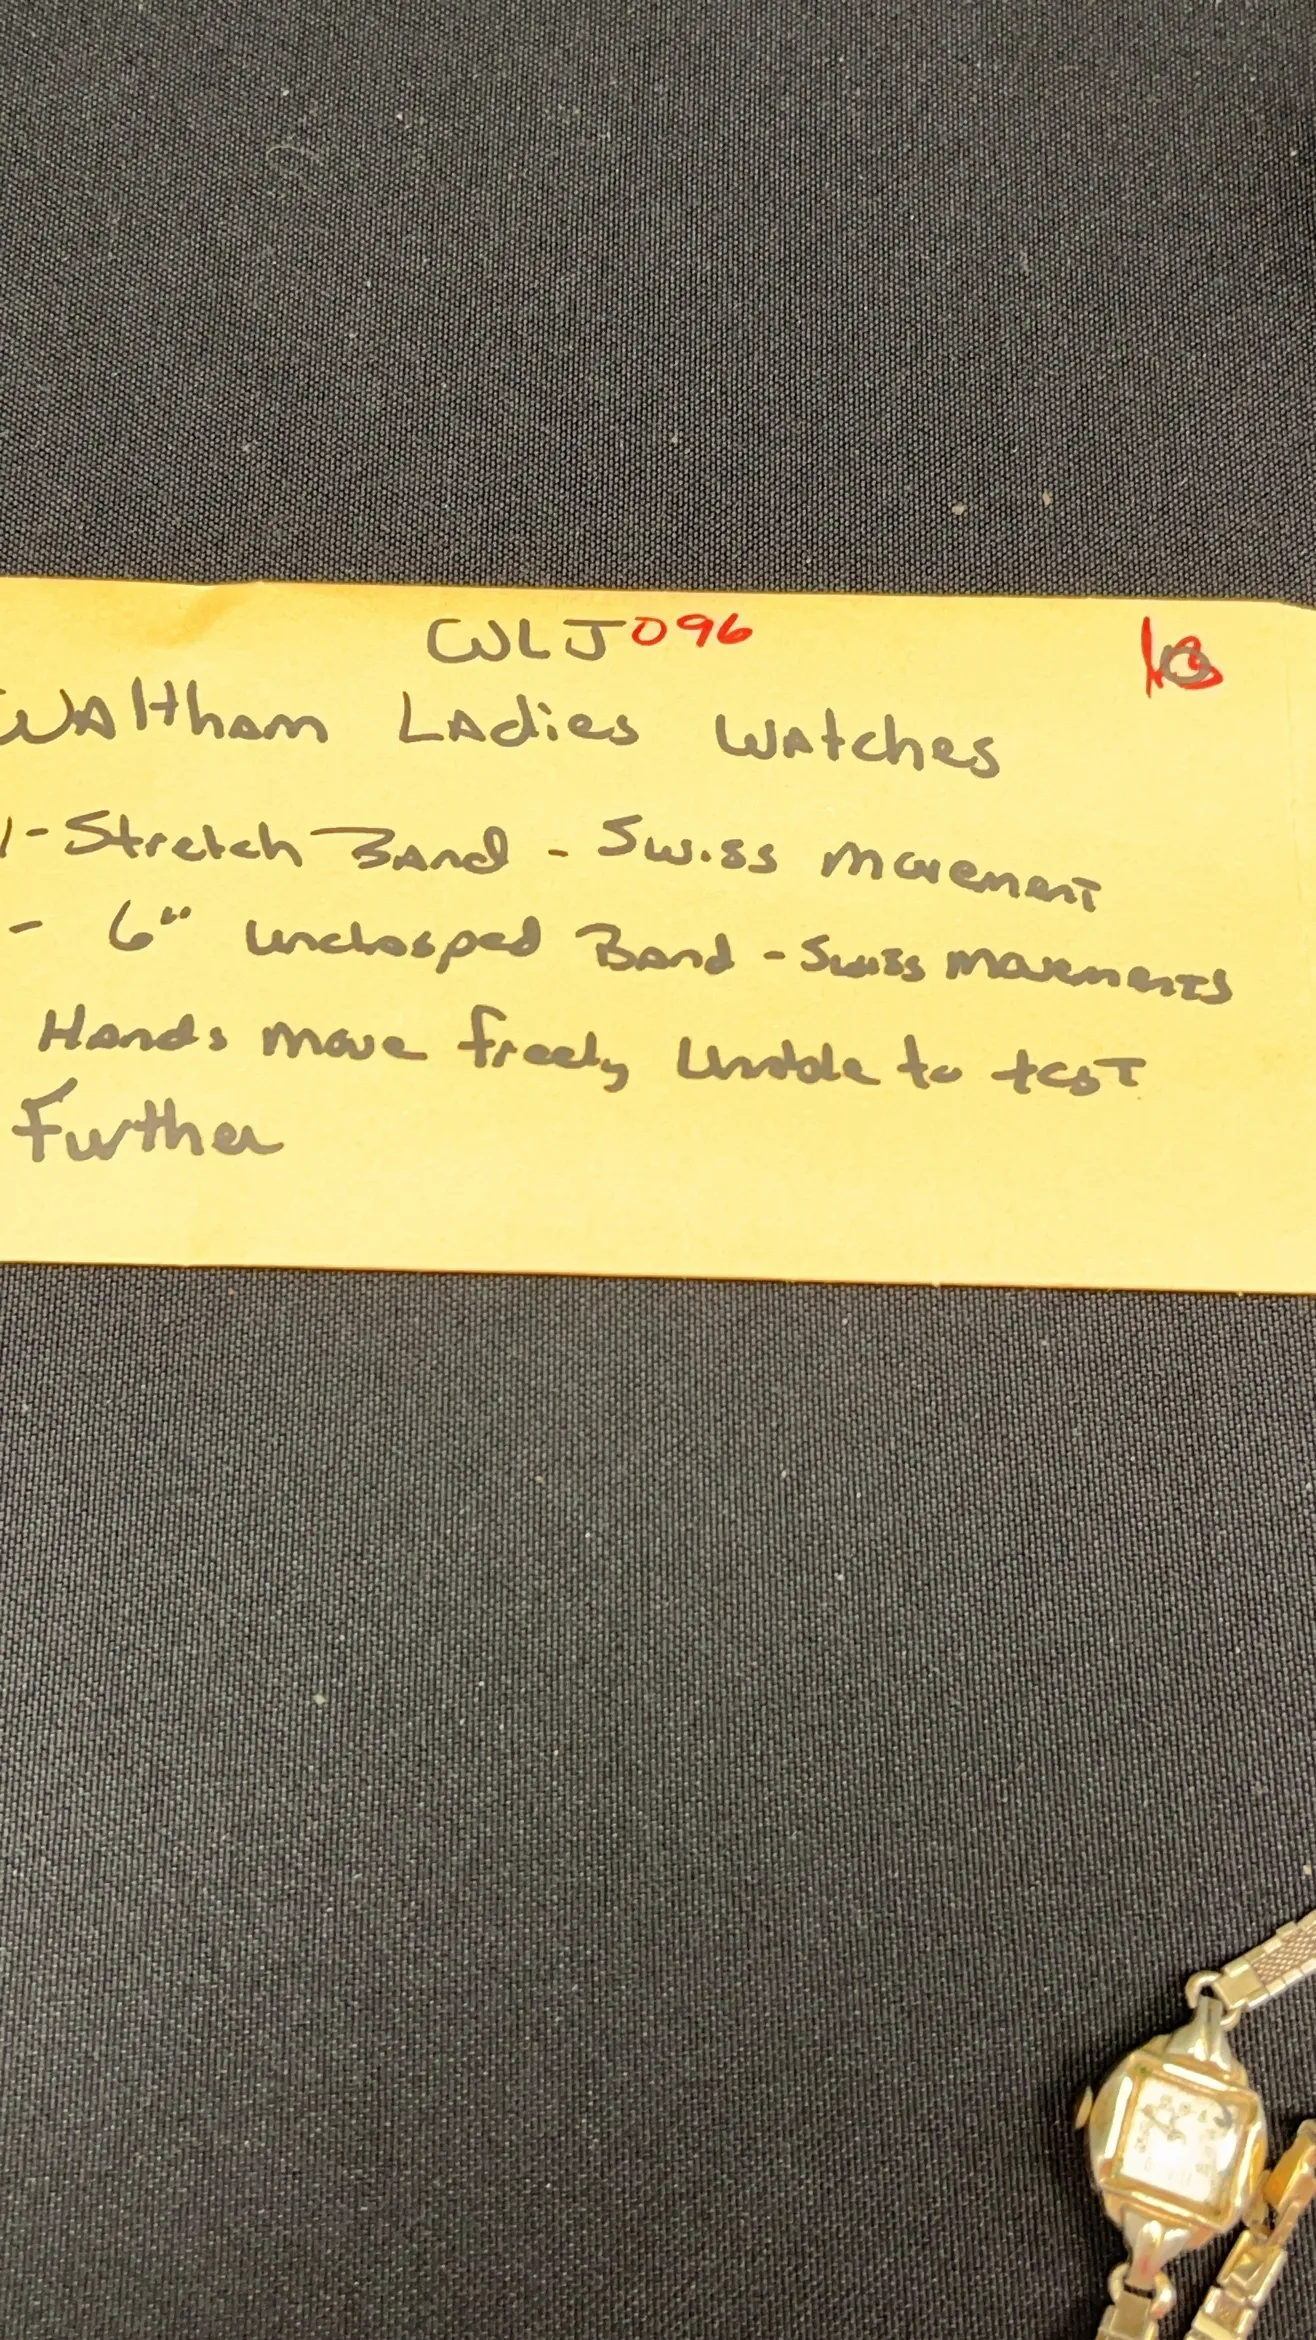 CWLJ096
Waltham Ladies Watches
1-Stretch Band - Swiss movement
- 6" unclasped Band - Swiss movements
Hands move freely Unable to test
Further